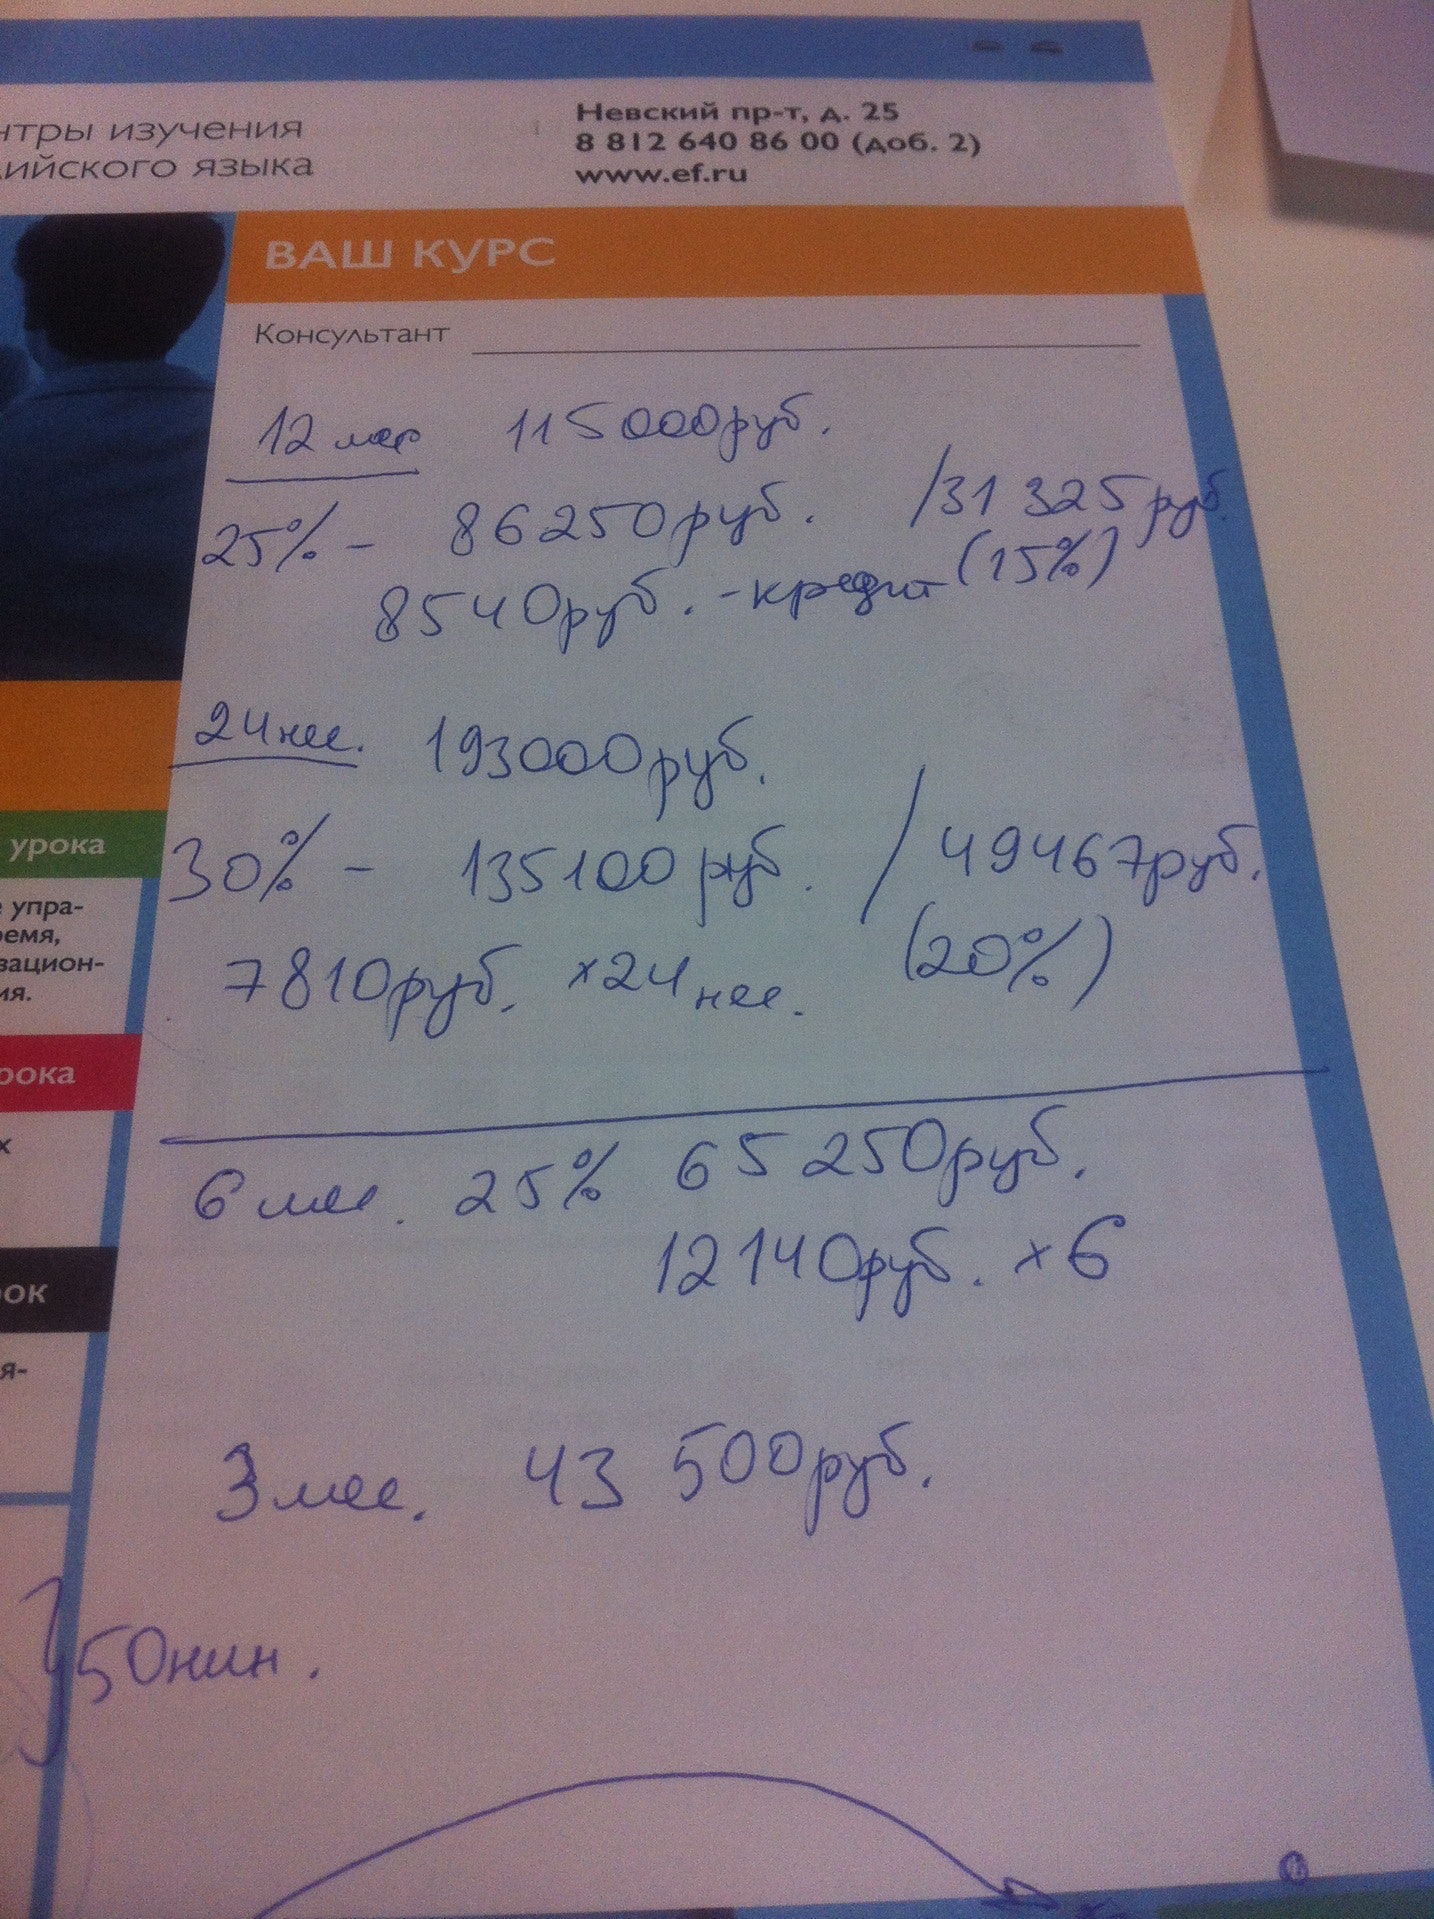 нтры изучения
ийского языка
Невский пр-т, д. 25
8 812 640 86 00 (доб. 2)
www.ef.ru
ВАШ КУРС
Консультант
12 мес 115000руб.
25% - 86250руб. /31 325руб.
8540руб. - кредит (15%)
24 мес. 193000руб.
30% - 135100руб. / 49467руб.
7810руб. ×24 мес. (20%)
6 мес. 25% 65 250руб.
12 140руб. ×6
3 мес. 43 500руб.
50 мин.
урока
е упра-
ремя,
зацион-
ия.
рока
х
рок
я-